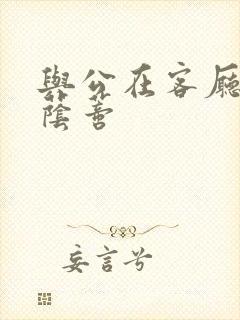 與公在客廳
陰啻
妄言兮